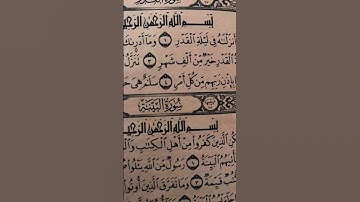 سُورَةُ الْقَدْرِ
بِسْمِ اللَّهِ الرَّحْمَٰنِ الرَّحِيمِ
أَنْزَلْنَاهُ فِي لَيْلَةِ الْقَدْرِ ۝١ وَمَا أَدْرَىٰكَ
الْقَدْرِ خَيْرٌ مِنْ أَلْفِ شَهْرٍ ۝٣ تَنَزَّلُ
بِإِذْنِ رَبِّهِمْ مِنْ كُلِّ أَمْرٍ ۝٤ سَلَٰمٌ هِيَ
سُورَةُ الْبَيِّنَةِ
بِسْمِ اللَّهِ الرَّحْمَٰنِ الرَّحِيمِ
كُنِ الَّذِينَ كَفَرُوا مِنْ أَهْلِ الْكِتَٰبِ
تِيَهُمُ الْبَيِّنَةُ ۝١ رَسُولٌ مِنَ اللَّهِ يَتْلُو
تُبٌ قَيِّمَةٌ ۝٣ وَمَا تَفَرَّقَ الَّذِينَ أُوتُوا